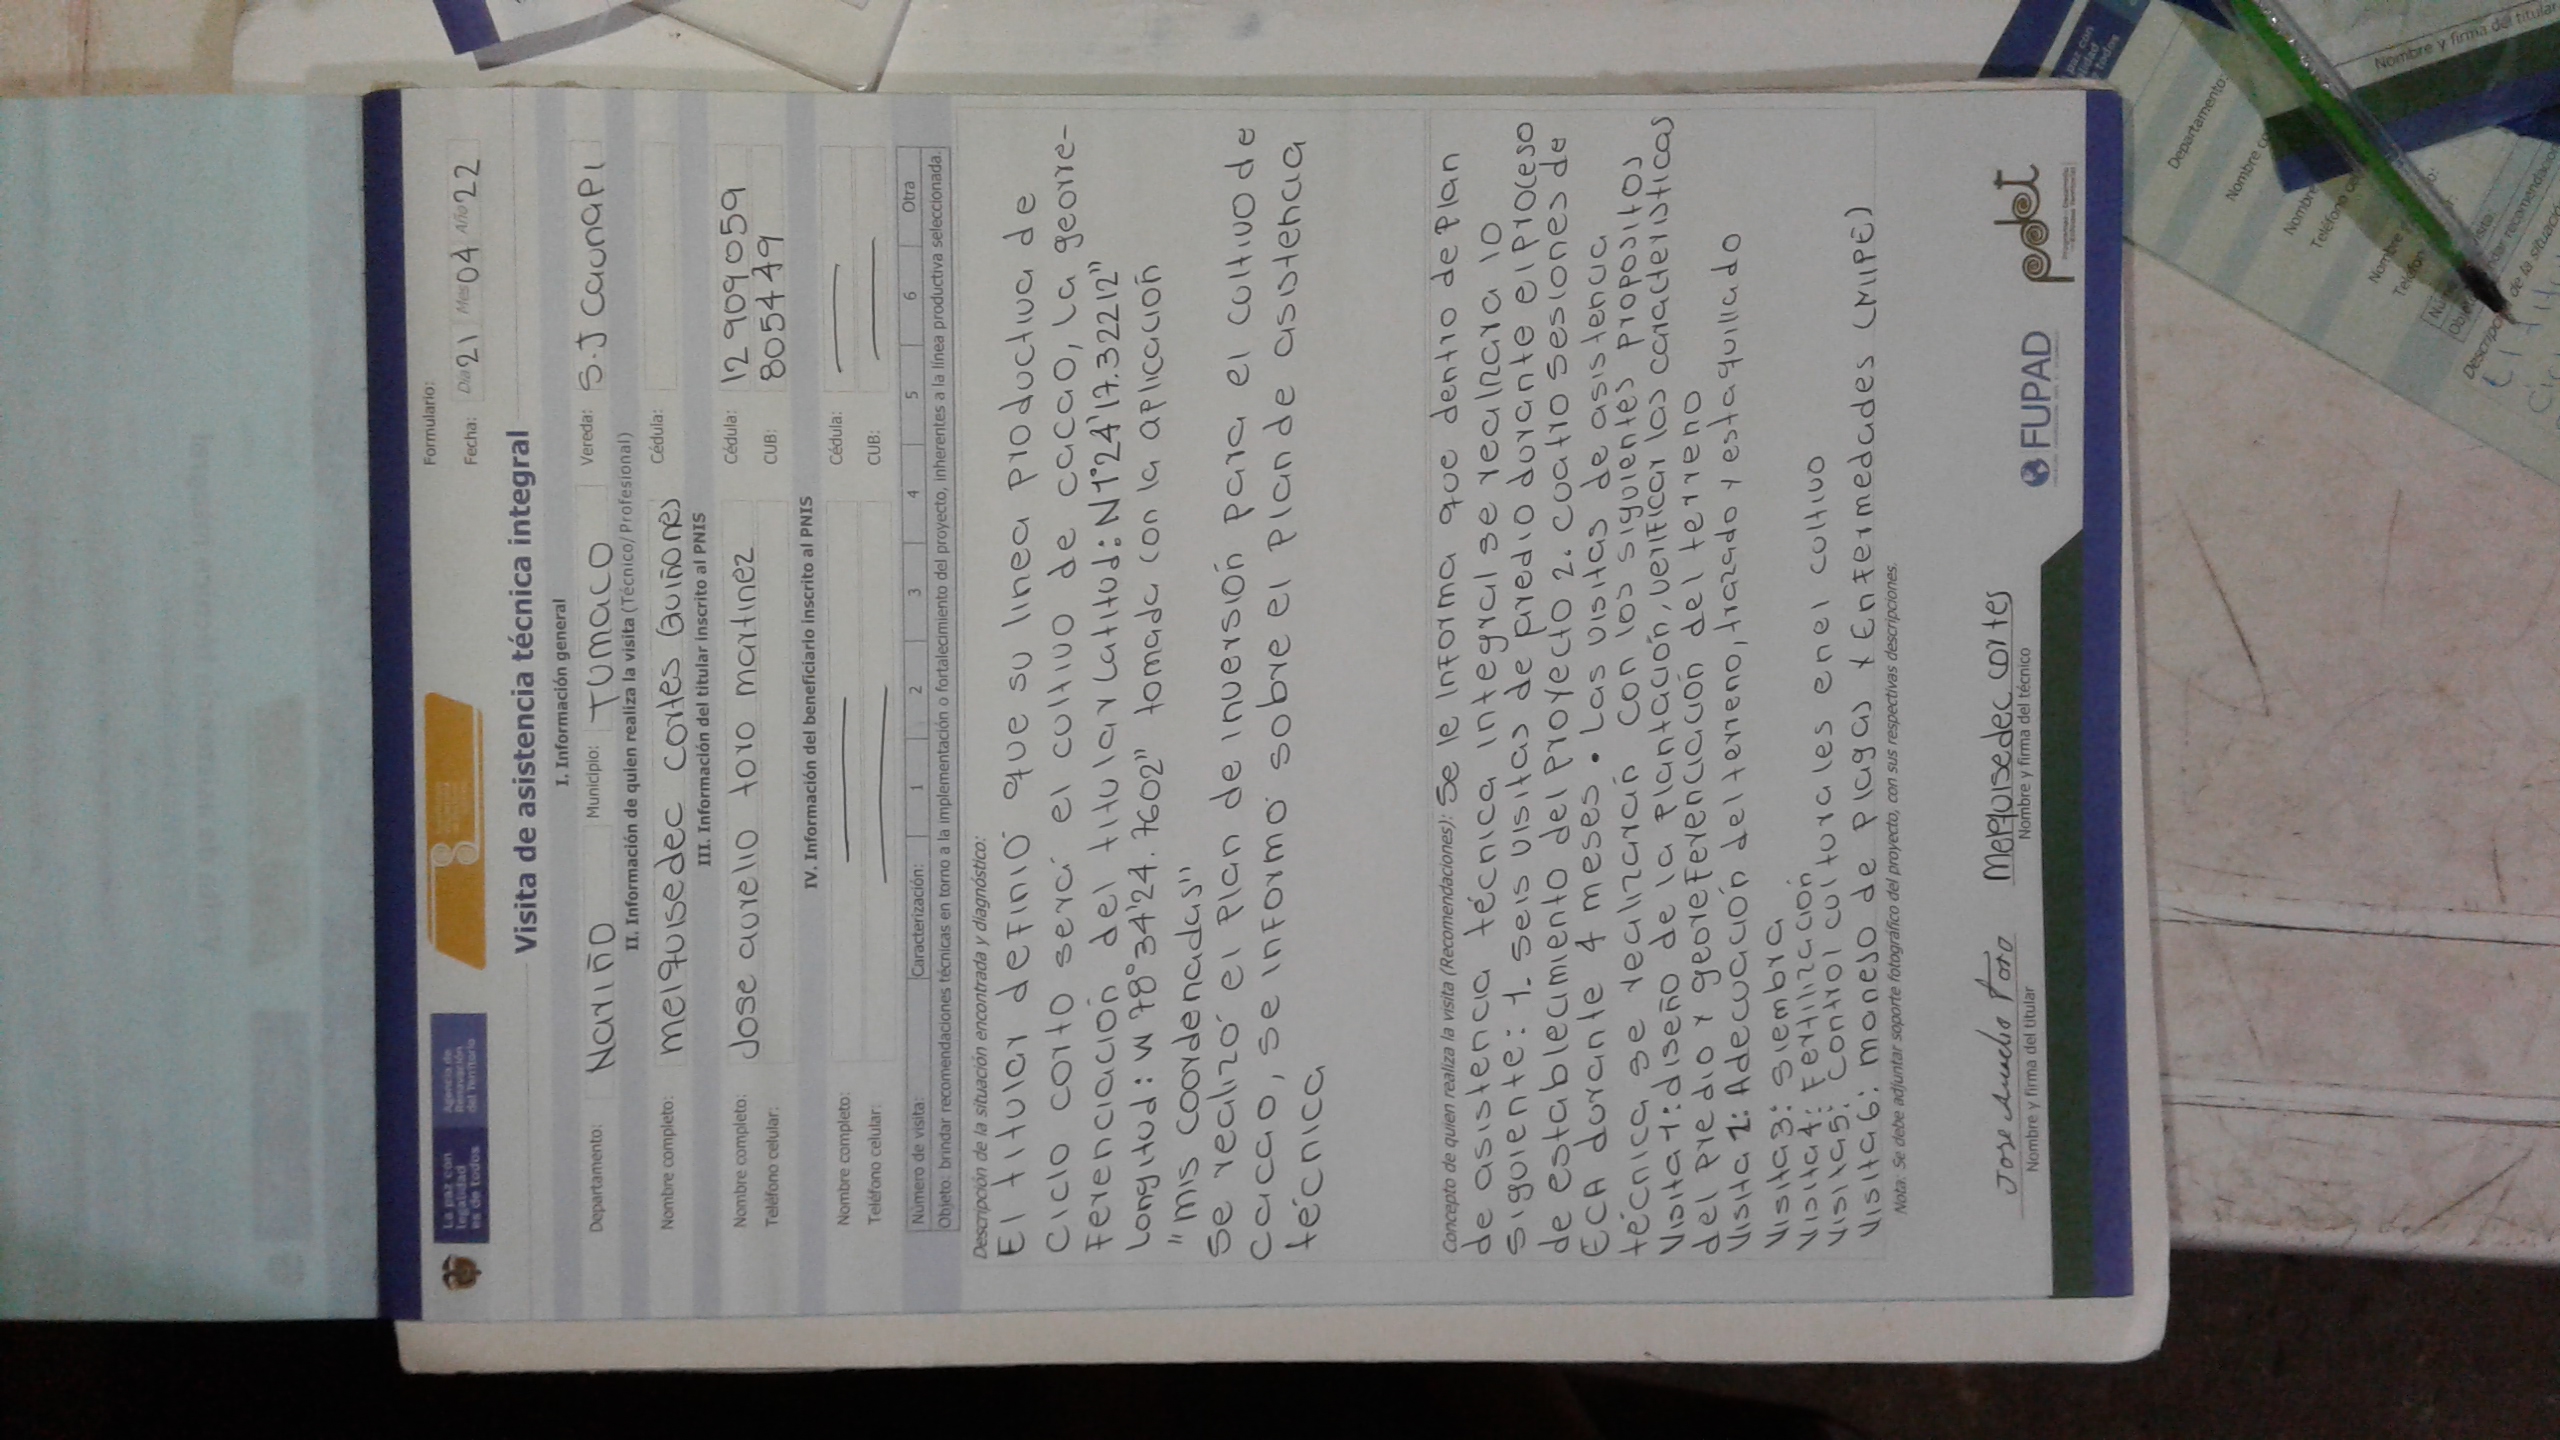 La paz con
legalidad
es de todos
Agencia de
Renovación
del Territorio
Formulario:
Fecha: Día 21 Mes 04 Año 22
Visita de asistencia técnica integral
I. Información general
Departamento: Nariño Municipio: TUMACO Vereda: S.J CaunaPi
II. Información de quien realiza la visita (Técnico/ Profesional)
Nombre completo: melquisedec cortes Quiñones Cédula:
III. Información del titular inscrito al PNIS
Nombre completo: Jose aurelio toro martinez Cédula: 12909059
Teléfono celular: CUB: 805449
IV. Información del beneficiario inscrito al PNIS
Nombre completo: Cédula:
Teléfono celular: CUB:
Número de visita: Caracterización: 1 2 3 4 5 6 Otra
Objeto: brindar recomendaciones técnicas en torno a la implementación o fortalecimiento del proyecto, inherentes a la línea productiva seleccionada.
Descripción de la situación encontrada y diagnóstico:
El titular definió que su linea productiva de
Ciclo corto será el cultivo de cacao, la georre-
ferenciación del titular Latitud: N1°24'17.32212"
Longitud: W 78°34'24.7602" tomada con la aplicación
"mis coordenadas"
Se realizó el Plan de inversión para el cultivo de
cacao, se informo sobre el Plan de asistencia
técnica
Concepto de quien realiza la visita (Recomendaciones): Se le informa que dentro de Plan
de asistencia técnica integral se realizara lo
Siguiente: 1. Seis visitas de predio durante el Proceso
de establecimiento del Proyecto 2. cuatro sesiones de
ECA durante 4 meses. Las visitas de asistencia
técnica se realizarán con los siguientes propositos
Visita 1: diseño de la Plantación, verificar las caracteristicas
del Predio y georeferenciación del terreno
Visita 2: Adecuación del terreno, trazado y estaquillado
Visita 3: Siembra
Visita 4: Fertilización
Visita 5: Control culturales en el cultivo
Visita 6: manejo de Plagas y Enfermedades (MIPE)
Nota: Se debe adjuntar soporte fotográfico del proyecto, con sus respectivas descripciones.
Jose Aurelio Toro
Nombre y firma del titular
Melquisedec cortes
Nombre y firma del técnico
FUPAD
pdet
paz con
Nombre y firma del titular
Departamento: